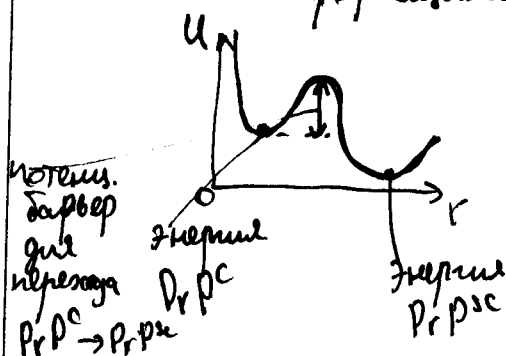 U
потенц.
барьер
для
перехода
PrP^c → PrP^sc
0
r
Энергия
PrP^c
Энергия
PrP^sc